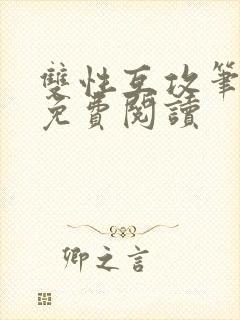 雙性互攻筆
免費閱讀
卿之言